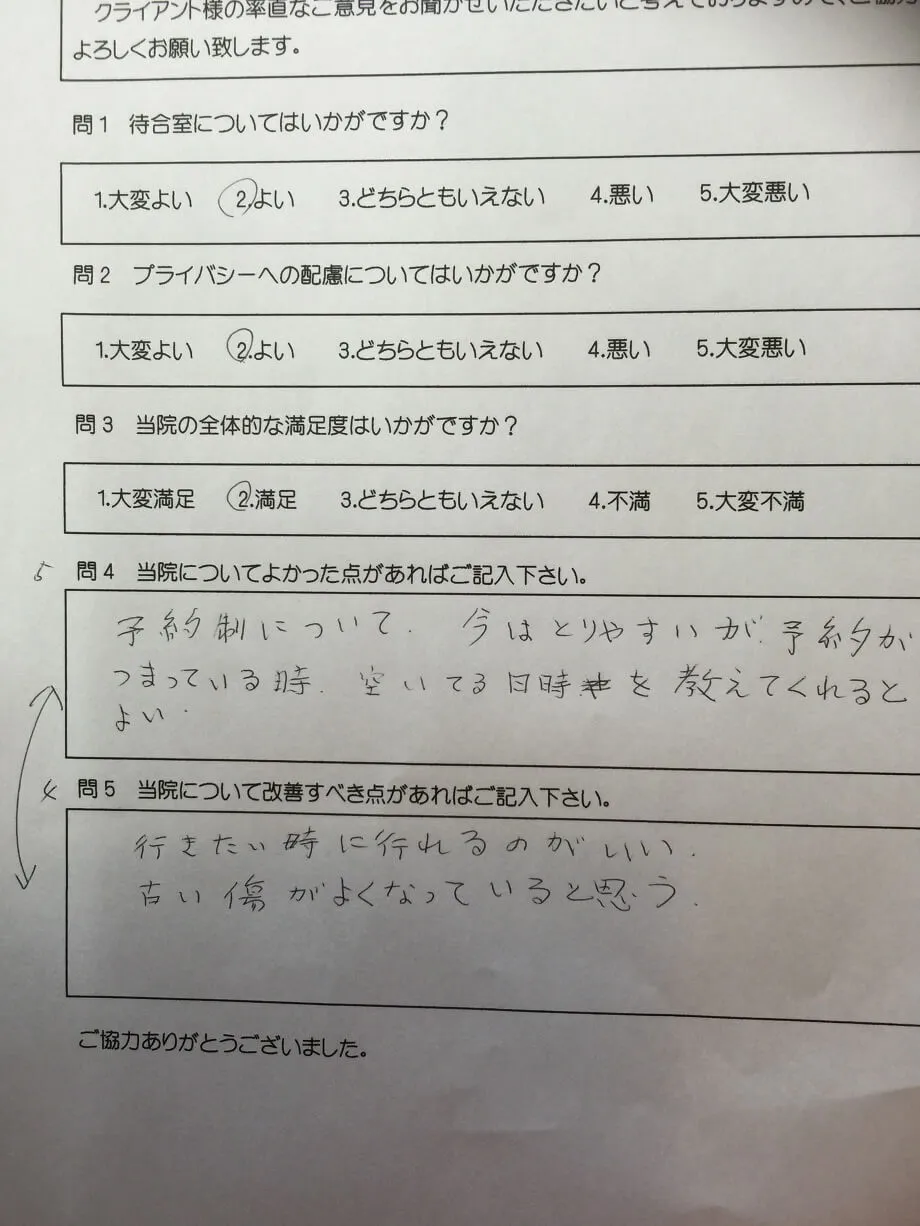 クライアント様の率直なご意見をお聞かせいただきたいと考えておりますので、ご協力
よろしくお願い致します。
問1 待合室についてはいかがですか?
1.大変よい 2.よい 3.どちらともいえない 4.悪い 5.大変悪い
問2 プライバシーへの配慮についてはいかがですか?
1.大変よい 2.よい 3.どちらともいえない 4.悪い 5.大変悪い
問3 当院の全体的な満足度はいかがですか?
1.大変満足 2.満足 3.どちらともいえない 4.不満 5.大変不満
5 問4 当院についてよかった点があればご記入下さい。
予約制について. 今はとりやすいが、予約が
つまっている時、空いてる日時を教えてくれると
よい.
4 問5 当院について改善すべき点があればご記入下さい。
行きたい時に行れるのがいい.
古い傷がよくなっていると思う.
ご協力ありがとうございました。